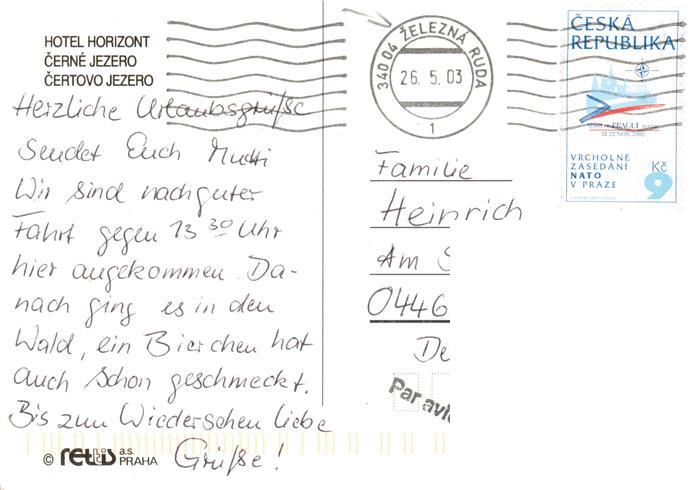 HOTEL HORIZONT
ČERNÉ JEZERO
ČERTOVO JEZERO
Herzliche Urlaubsgrüße
sendet Euch Mutti
Wir sind nach guter
Fahrt gegen 13 30 Uhr
hier angekommen. Da-
nach ging es in den
Wald, ein Bierchen hat
auch schon geschmeckt.
Bis zum Wiedersehen liebe
Grüße!
© retis a.s.
PRAHA
340 04 ŽELEZNÁ RUDA
26.5.03
1
ČESKÁ
REPUBLIKA
PRAGUE
21-22 NOV. 2002
VRCHOLNÉ
ZASEDÁNÍ
NATO
V PRAZE
Kč
9
Familie
Heinrich
Am S
0446
De
Par avi